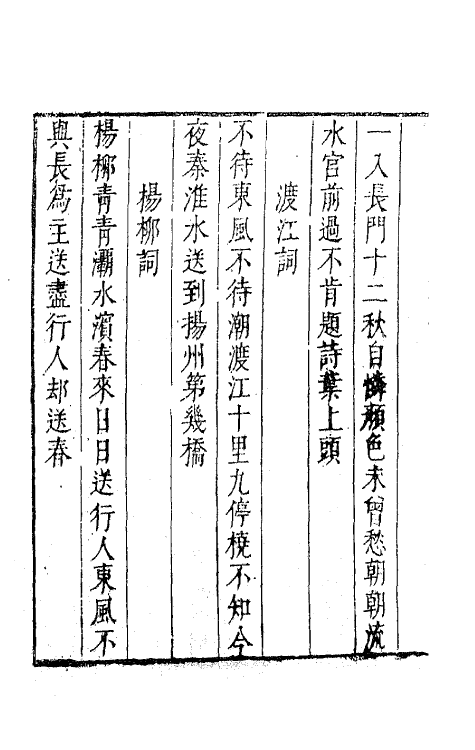 一入長門十二秋自憐顏色未曾愁朝朝流
水宮前過不肯題詩葉上頭
渡江詞
不待東風不待潮渡江十里九停橈不知今
夜秦淮水送到揚州第幾橋
楊柳詞
楊柳青青灞水濱春來日日送行人東風不
與長為主送盡行人却送春